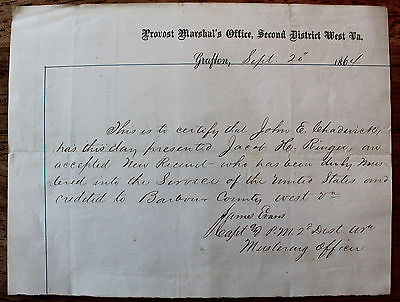 Provost Marshal's Office, Second District West Va.
Grafton, Sept. 20 1864
This is to certify that John E. Chadwick
has this day presented Jacob H. Ringer, an
accepted New Recruit - who has been duly mus-
tered into the Service of the United States and
credited to Barbour County West Va
James Evans
Capt & P.M. 2d Dist W Va
Mustering Officer